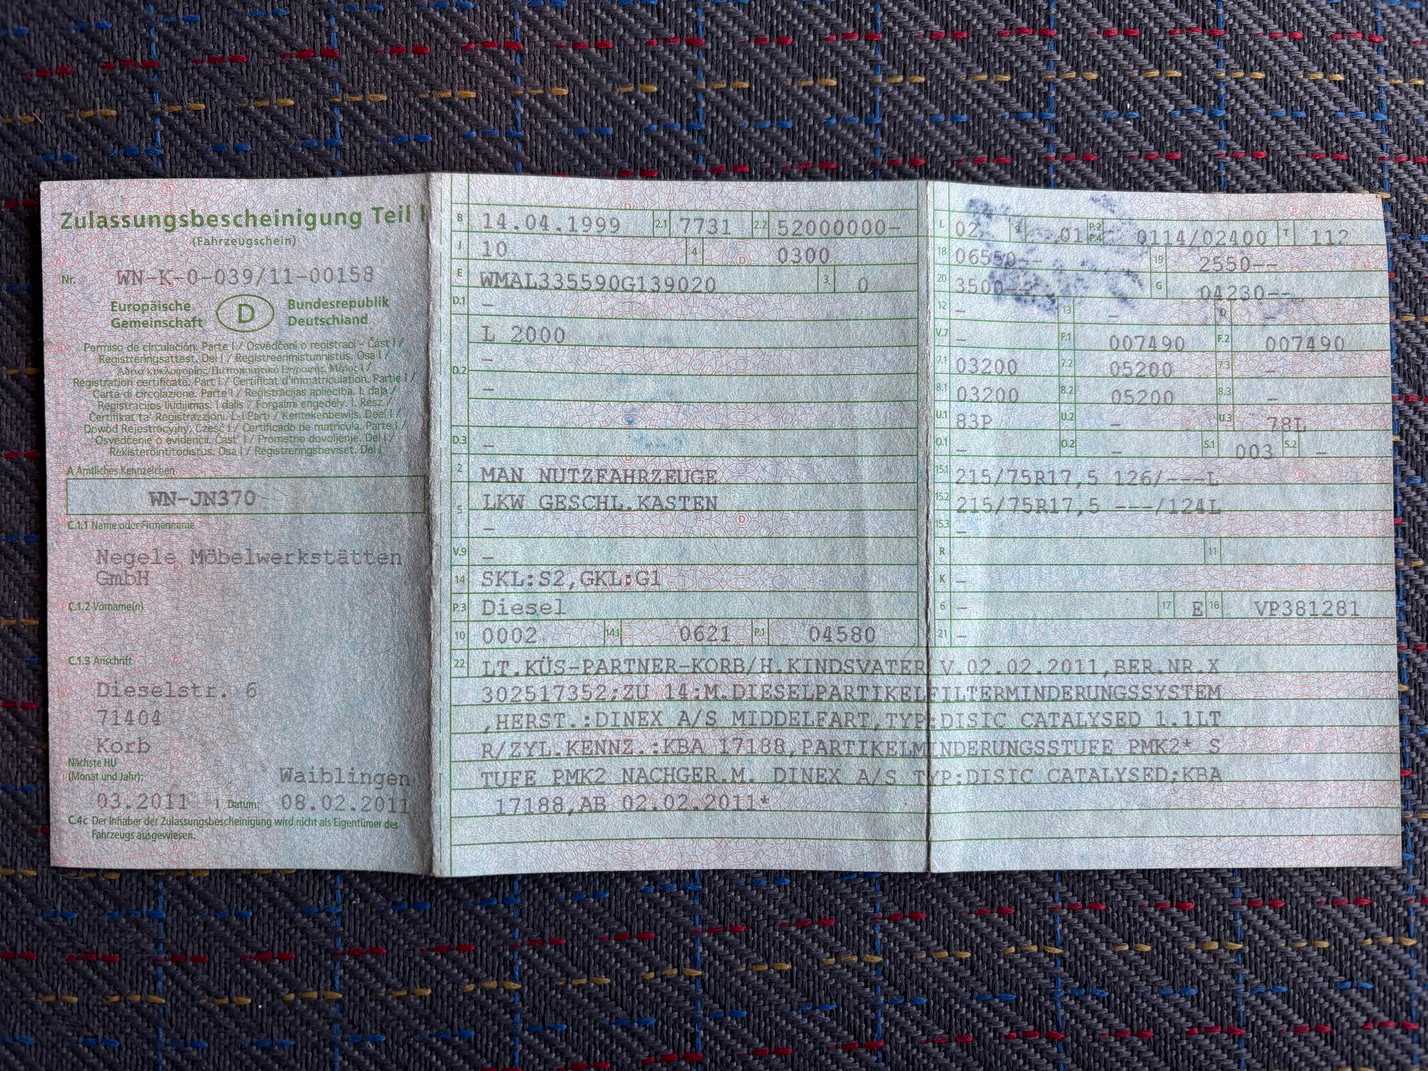 Zulassungsbescheinigung Teil I
(Fahrzeugschein)
Nr. WN-K-0-039/11-00158
Europäische Gemeinschaft D Bundesrepublik Deutschland
Permiso de circulación. Parte I / Osvědčení o registraci - Část I /
Registreringsattest. Del I / Registreerimistunnistus. Osa I /
Registration certificate. Part I / Certificat d'immatriculation. Partie I /
Carta di circolazione. Parte I / Reģistrācijas apliecība. I. daļa /
Registracijos liudijimas. I dalis / Forgalmi engedély. I. Rész /
Ċertifikat ta' Reġistrazzjoni. L-I Parti / Kentekenbewijs. Deel I /
Dowód Rejestracyjny. Część I / Certificado de matrícula. Parte I /
Osvedčenie o evidencii. Časť I / Prometno dovoljenje. Del I /
Rekisteröintitodistus. Osa I / Registreringsbeviset. Del I
A Amtliches Kennzeichen
WN-JN370
C.1.1 Name oder Firmenname
Negele Möbelwerkstätten
GmbH
C.1.2 Vorname(n)
C.1.3 Anschrift
Dieselstr. 6
71404
Korb
Nächste HU
(Monat und Jahr): Waiblingen
03.2011 Datum: 08.02.2011
C.4c Der Inhaber der Zulassungsbescheinigung wird nicht als Eigentümer des
Fahrzeugs ausgewiesen.
B 14.04.1999 2.1 7731 2.2 52000000-
J 10 4 0300
E WMAL335590G139020 3 0
D.1 –
L 2000
–
D.2 –
D.3 –
2 MAN NUTZFAHRZEUGE
5 LKW GESCHL.KASTEN
–
V.9 –
14 SKL:S2,GKL:G1
P.3 Diesel
10 0002 14.1 0621 P.1 04580
L 02 01 P.2 P.4 0114/02400 T 112
18 06550-- 19 2550--
20 3500-- G 04230--
12 – 13 – Q –
V.7 – F.1 007490 F.2 007490
7.1 03200 7.2 05200 7.3 –
8.1 03200 8.2 05200 8.3 –
U.1 83P U.2 – U.3 78L
O.1 – O.2 – S.1 003 S.2 –
15.1 215/75R17,5 126/---L
15.2 215/75R17,5 ---/124L
15.3 –
R 11
K –
6 – 17 E 16 VP381281
21 –
22 LT.KÜS-PARTNER-KORB/H.KINDSVATER V.02.02.2011,BER.NR.X
302517352;ZU 14:M.DIESELPARTIKELFILTERMINDERUNGSSYSTEM
,HERST.:DINEX A/S MIDDELFART,TYP:DISIC CATALYSED 1.1LT
R/ZYL.KENNZ.:KBA 17188,PARTIKELMINDERUNGSSTUFE PMK2* S
TUFE PMK2 NACHGER.M. DINEX A/S TYP:DISIC CATALYSED;KBA
17188,AB 02.02.2011*